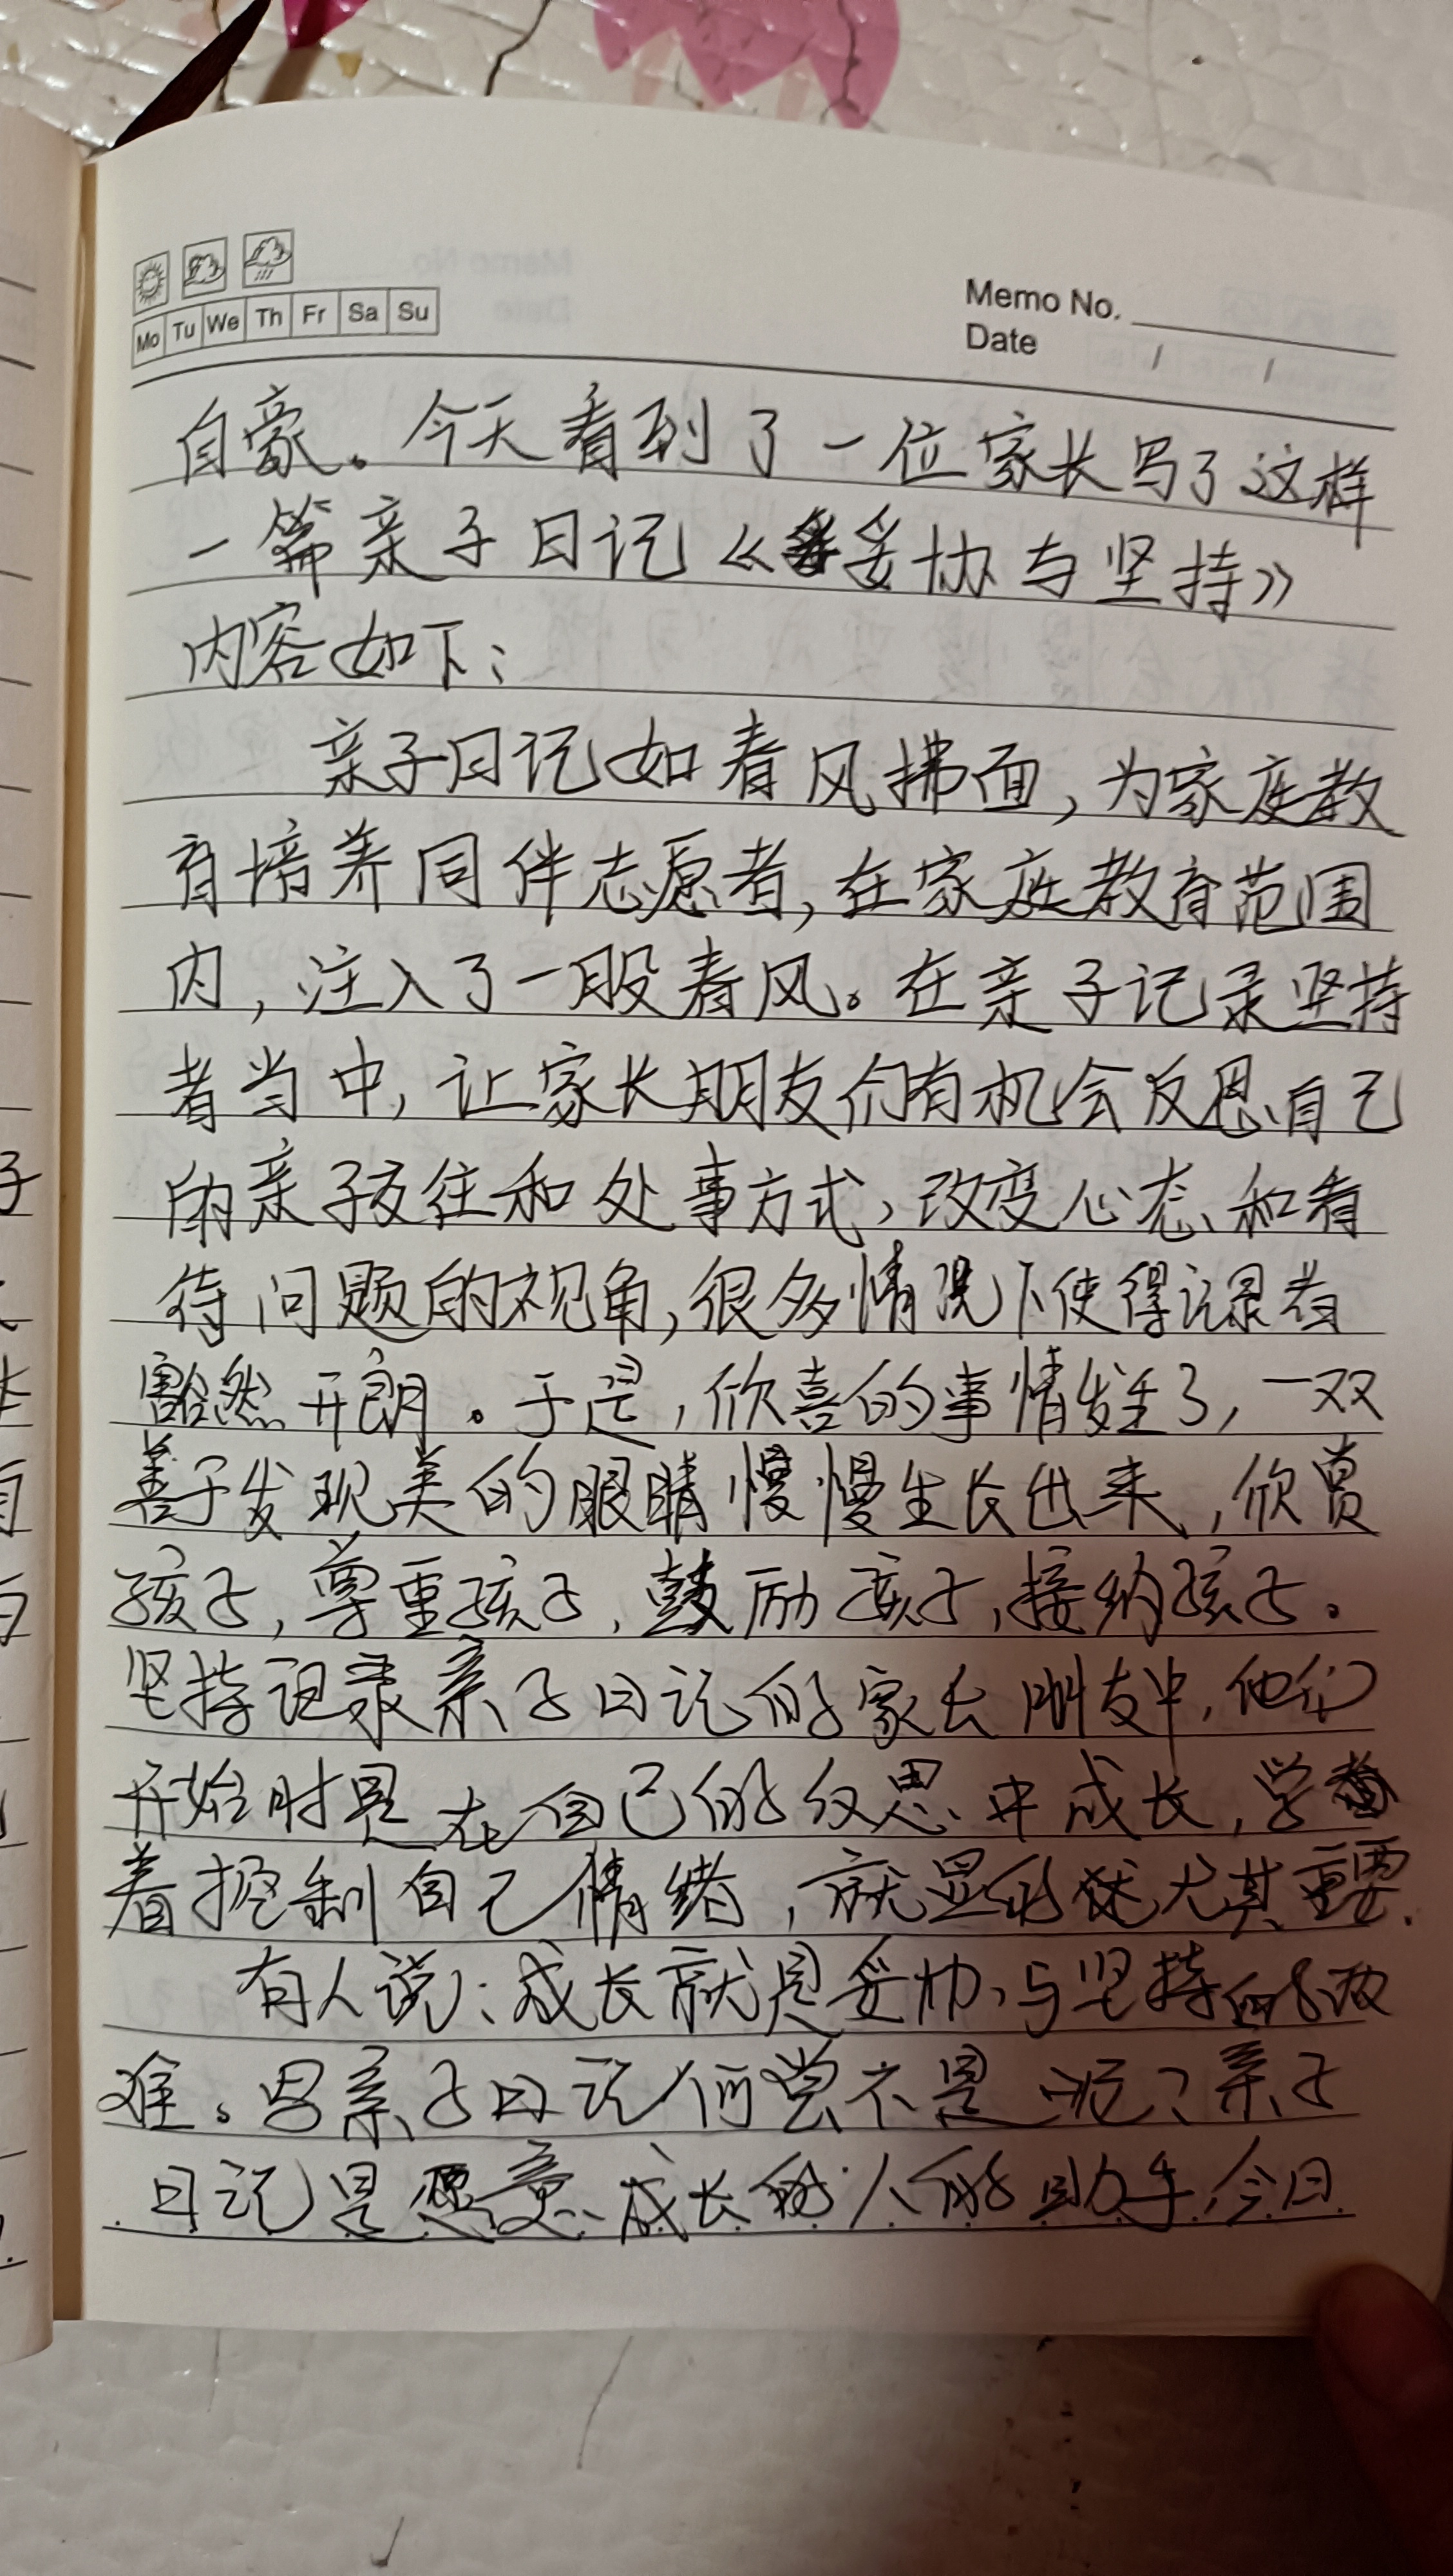 Mo Tu We Th Fr Sa Su
Memo No.
Date / /
自豪。今天看到了一位家长写了这样
一篇亲子日记《妥协与坚持》
内容如下：
亲子日记如春风拂面，为家庭教
育培养同伴志愿者，在家庭教育范围
内，注入了一股春风。在亲子记录坚持
者当中，让家长朋友们有机会反思自己
的亲子交往和处事方式，改变心态和看
待问题的视角，很多情况下使得记录者
豁然开朗。于是，欣喜的事情发生了，一双
善于发现美的眼睛慢慢生长出来，欣赏
孩子，尊重孩子，鼓励孩子，接纳孩子。
坚持记录亲子日记的家长朋友中，他们
开始时是在自己的反思中成长，学
着控制自己情绪，就显的尤其重要.
有人说：成长就是妥协与坚持的
难。写亲子日记何尝不是呢？亲子
日记是愿意成长的人的助手，今日